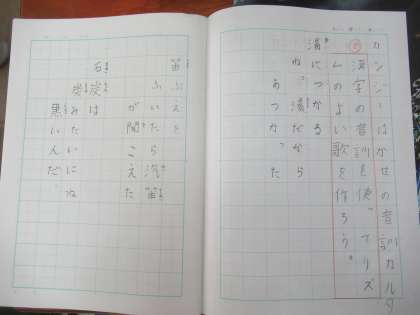 カンジーはかせの音訓カルタ
⑤漢字の音訓を使ってリズ
ムのよい歌を作ろう。
湯につかる
ねっ湯だから
あつかった
笛ふえを
ふいたら汽笛
が聞こえた
石炭は
炭みたいにね
黒いんだ。